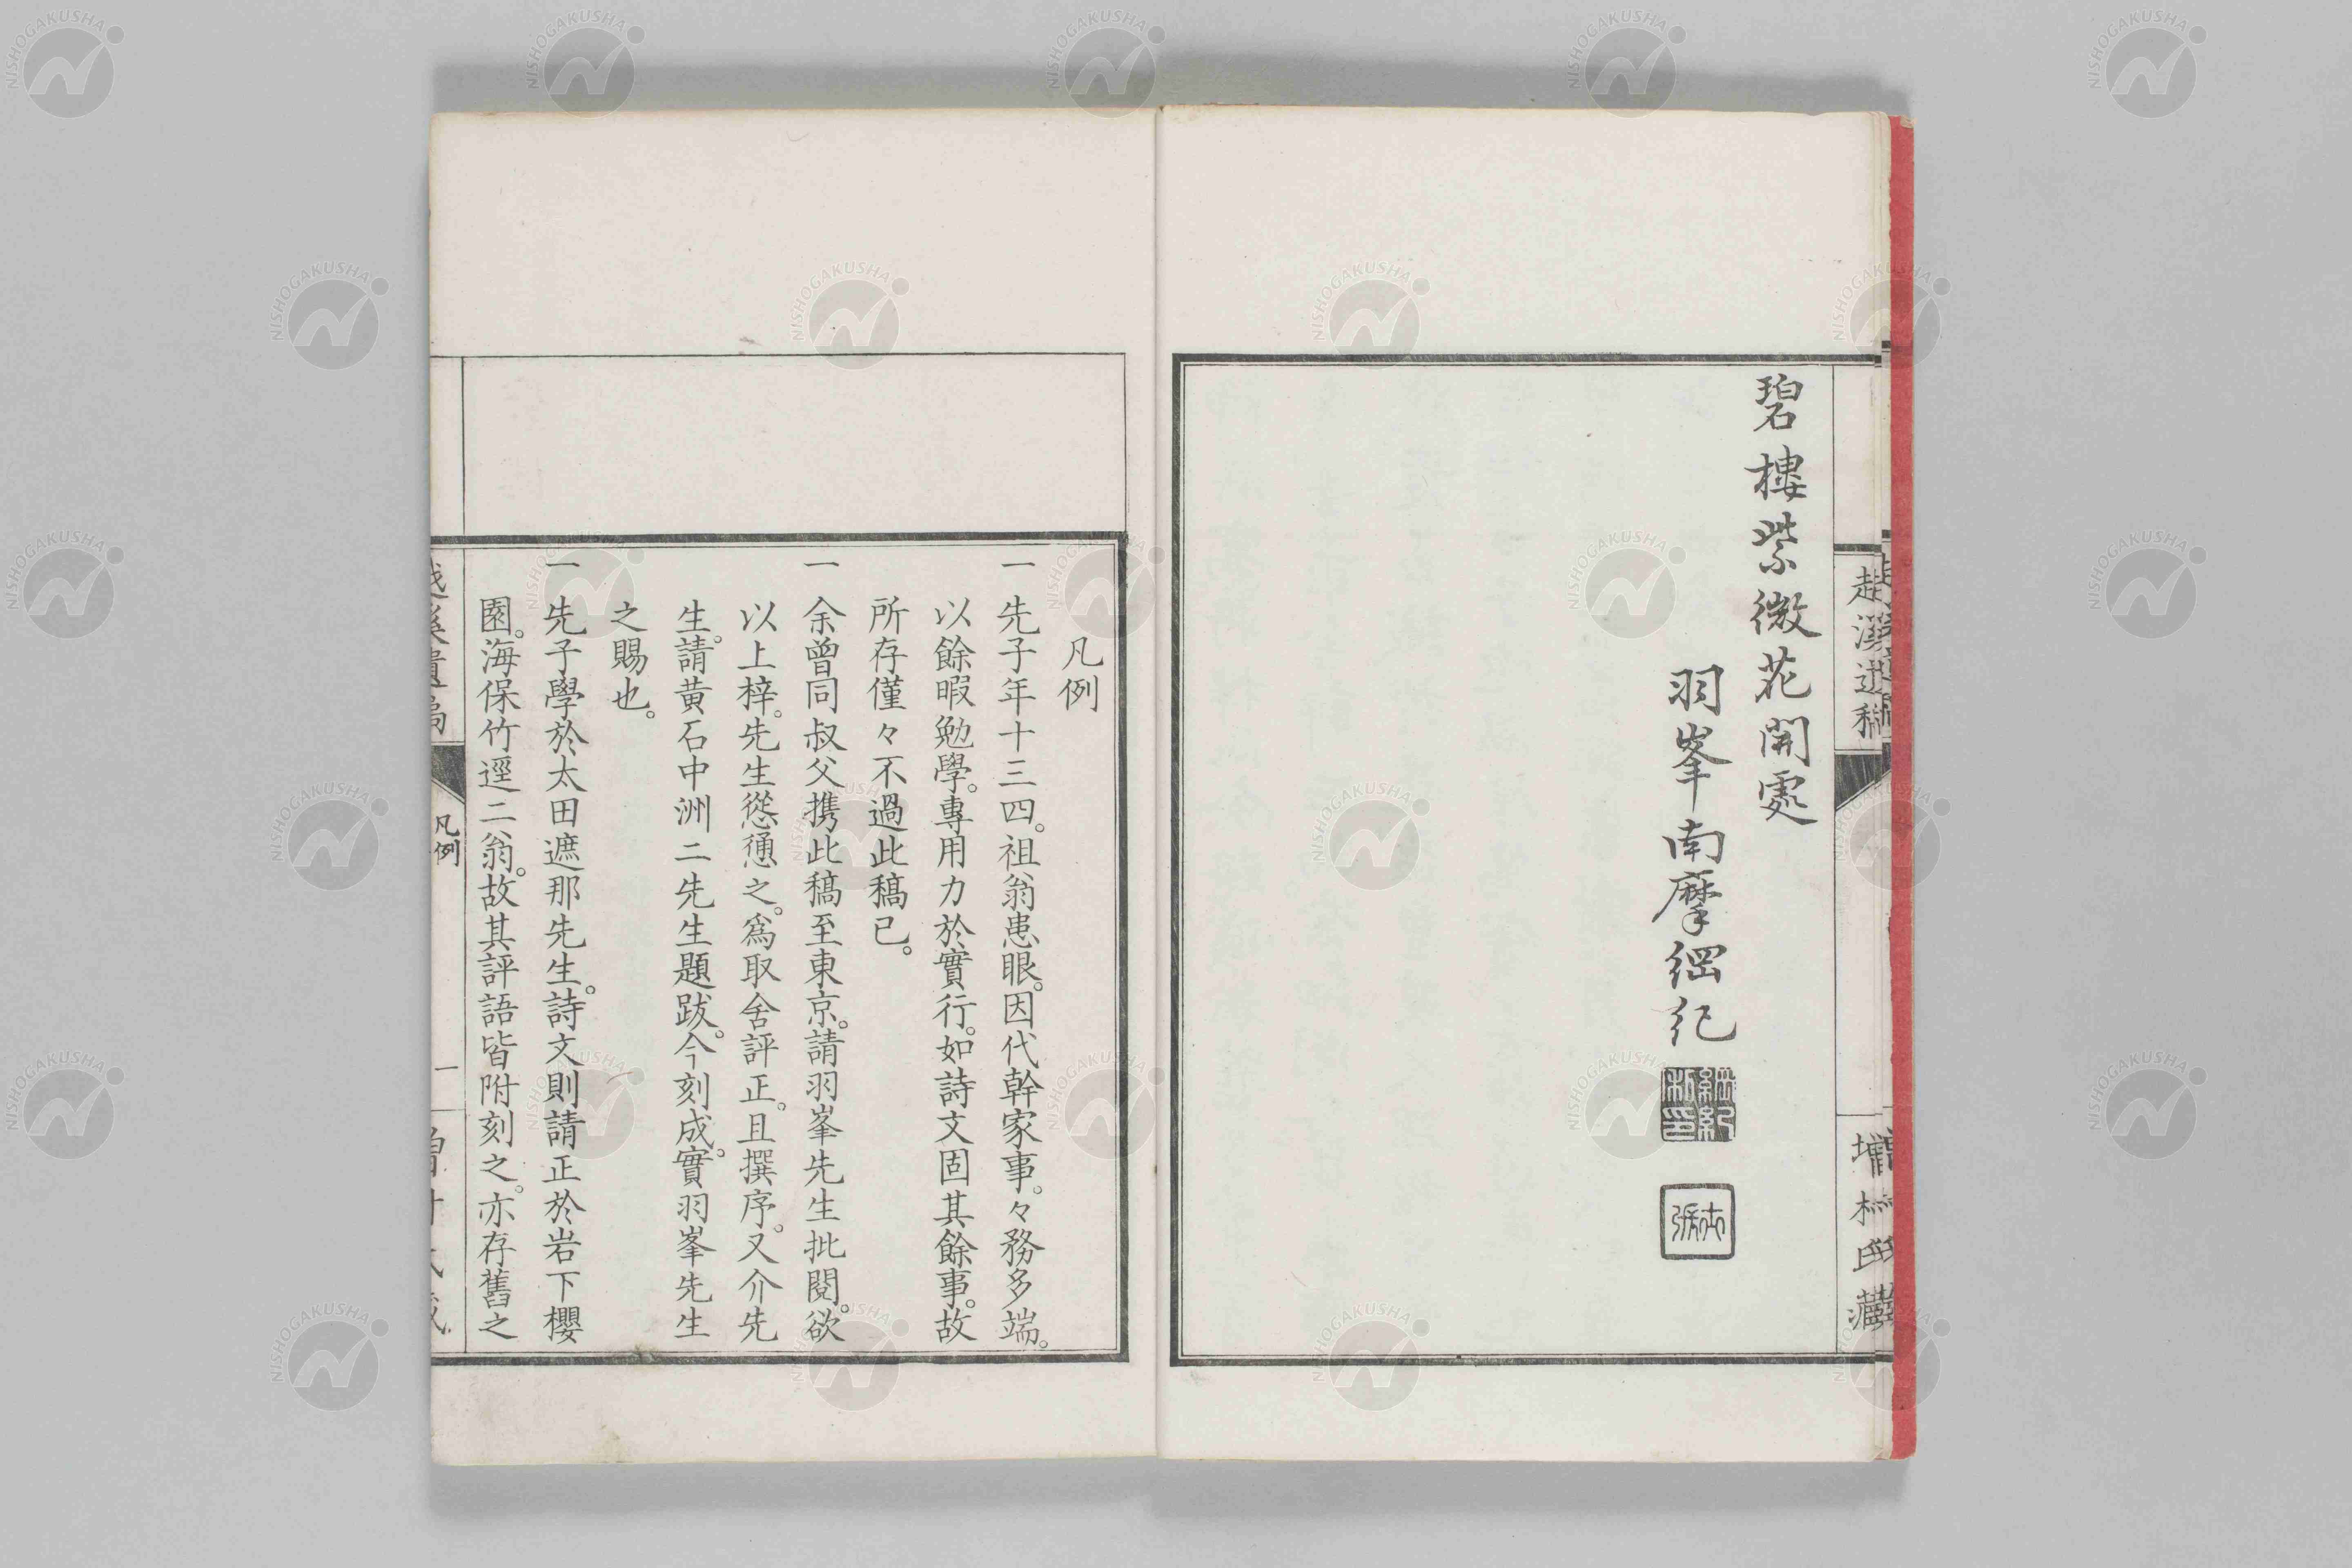 碧樓紫微花開處
羽峯南摩綱紀
凡例
一先子年十三四。祖翁患眼。因代幹家事。々務多端。
以餘暇勉學。專用力於實行。如詩文固其餘事。故
所存僅々不過此稿已。
一余曾同叔父携此稿至東京。請羽峯先生批閱。欲
以上梓。先生慫慂之。爲取舍評正。且撰序。又介先
生。請黃石中洲二先生題跋。今刻成。實羽峯先生
之賜也。
一先子學於太田遮那先生。詩文則請正於岩下櫻
園。海保竹逕二翁。故其評語皆附刻之。亦存舊之
凡例
一
NISHOGAKUSHA